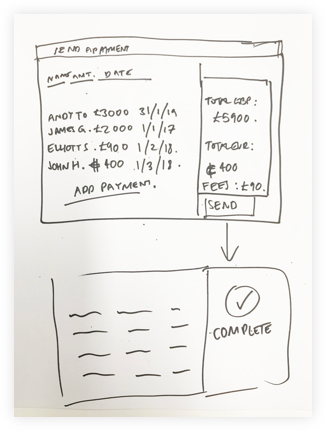 SEND A PAYMENT
NAME AMT. DATE
ANDY TO £3000 31/1/19
JAMES G. £2000 1/1/17
ELLIOTT S. £900 1/2/18.
JOHN H. € 400 1/3/18.
ADD PAYMENT.
TOTAL GBP:
£5900.
TOTAL EUR:
€400
FEES: £90.
SEND
COMPLETE